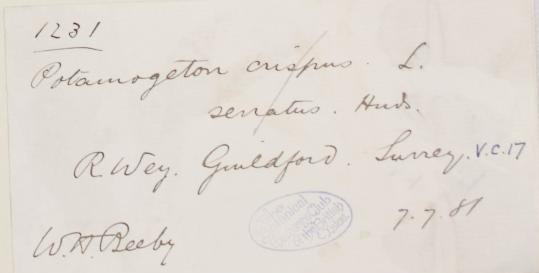 1231
Potamogeton crispus. L.
serratus. Huds.
R. Wey. Guildford. Surrey. V.C.17
7.7.81
W.H. Beeby